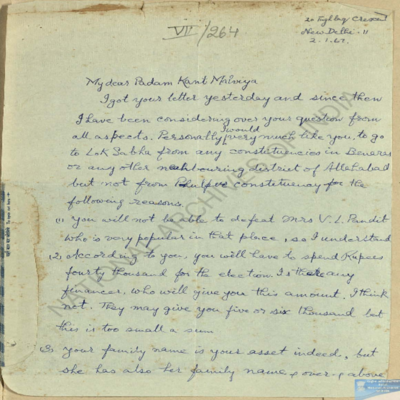 VII/264
20 Tughlag Crescent
New Delhi - 11
2-1-67.
My dear Padam Kant Malviya
I got your letter yesterday and since then
I have been considering over your question from
all aspects. Personally I would very much like you to go
to Lok Sabha from any constituencies in Benares
or any other neighbouring district of Allahabad
but not from Phulpur constituency for the
following reasons.
(1) You will not be able to defeat Mrs V. L. Pandit
who is very popular in that place, as I understand
(2) According to you, you will have to spend Rupees
fourty thousand for the election. Is there any
financer, who will give you this amount. I think
not. They may give you five or six thousand but
this is too small a sum
(3) your family name is your asset indeed, but
she has also her family name & over & above
NATIONAL ARCHIVES OF INDIA